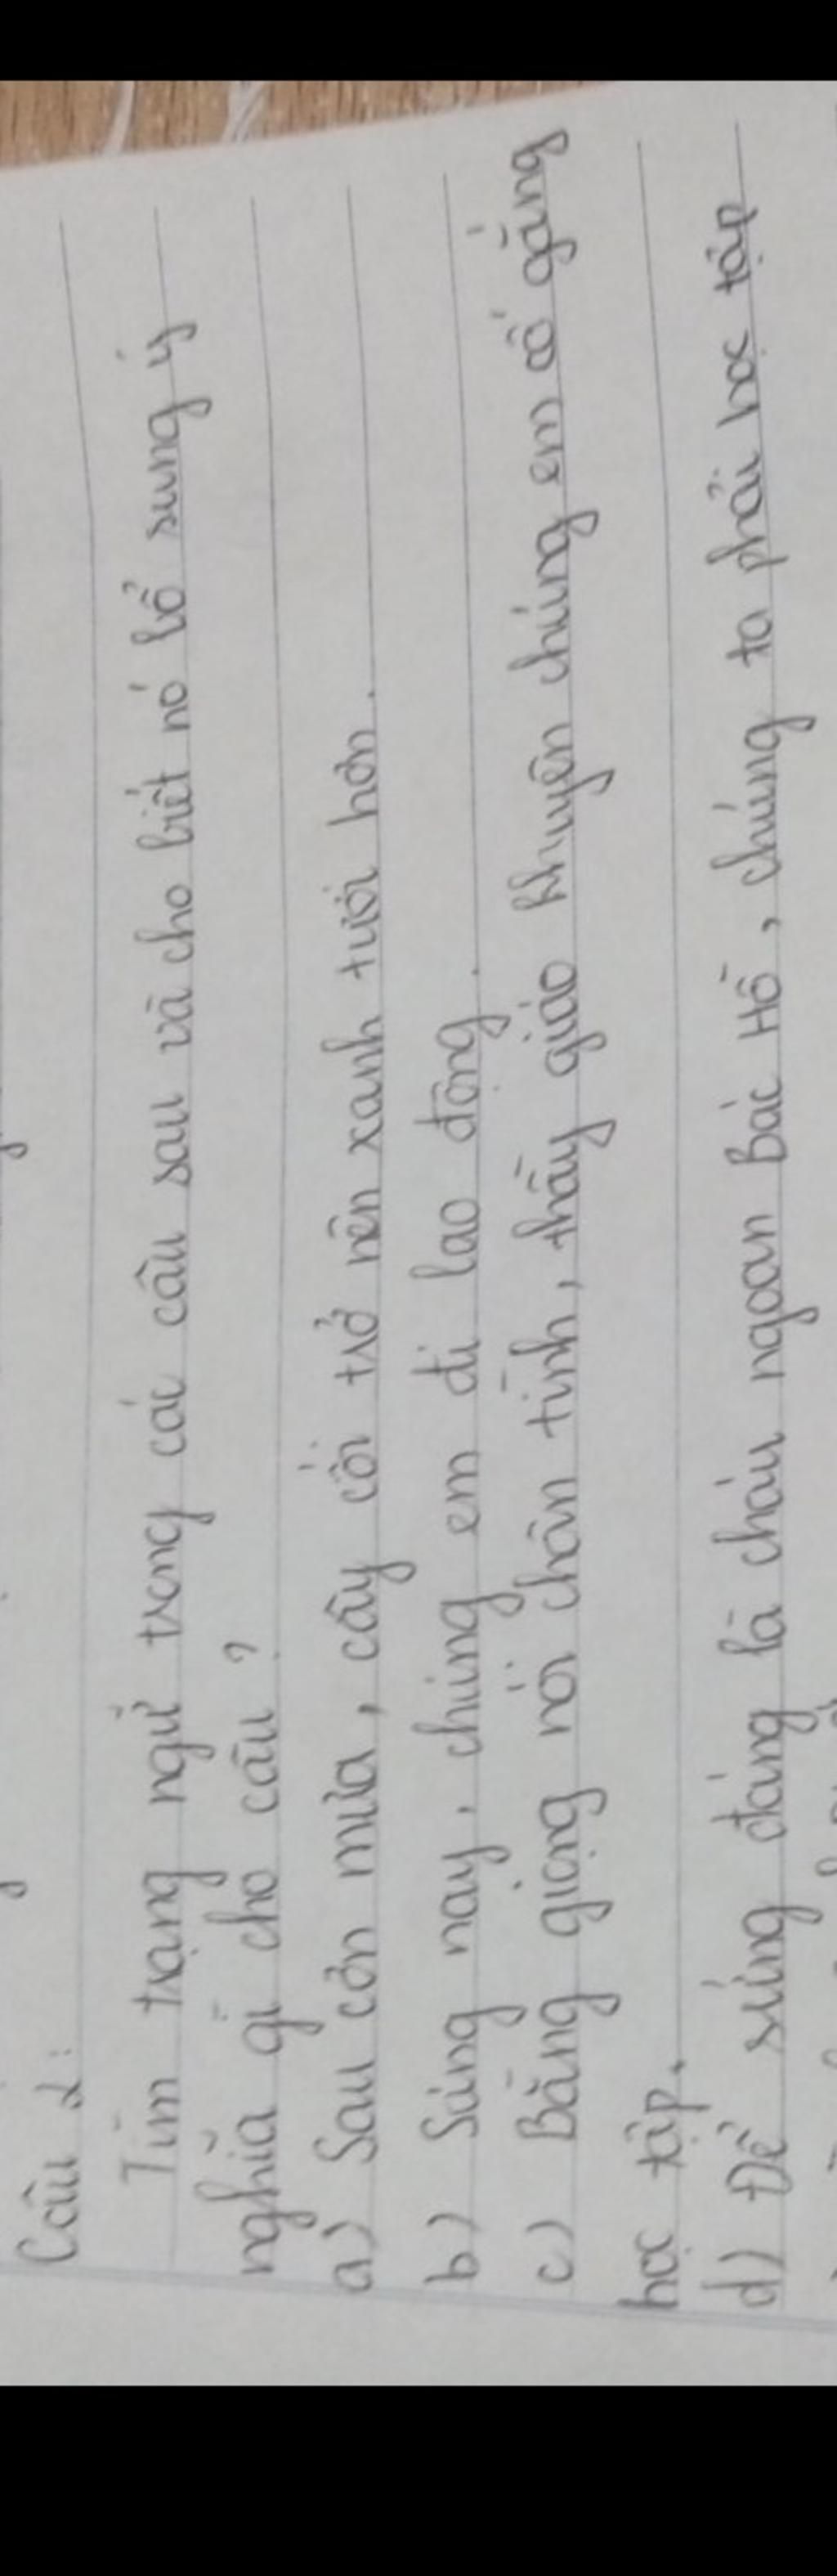 Câu 2:
Tìm trạng ngữ trong các câu sau và cho biết nó bổ sung ý
nghĩa gì cho câu?
a) Sau cơn mưa, cây cối trở nên xanh tươi hơn.
b) Sáng nay, chúng em đi lao động.
c) Bằng giọng nói chân tình, thầy giáo khuyên chúng em cố gắng
học tập.
d) Để xứng đáng là cháu ngoan Bác Hồ, chúng ta phải học tập